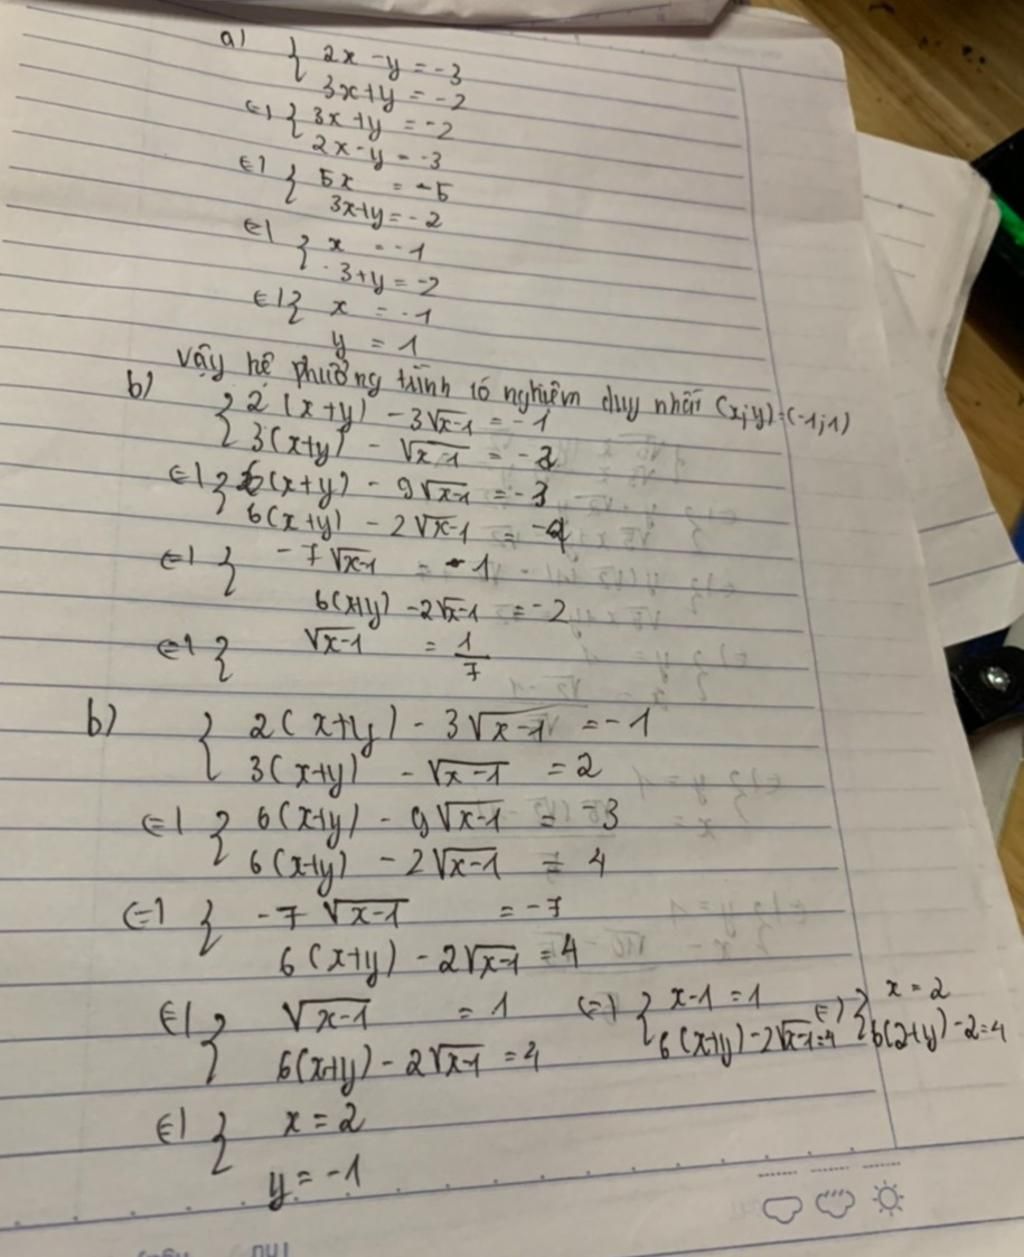 a) { 2x - y = -3
3x+y = -2
⇔ { 3x+y = -2
2x - y = -3
⇔ { 5x = -5
3x+y = -2
⇔ { x = -1
-3+y = -2
⇔ { x = -1
y = 1
Vậy hệ phường trình có nghiệm duy nhất (x;y)=(-1;1)
b) { 2(x+y) - 3√x-1 = -1
3(x+y) - √x-1 = -2
⇔ { 6(x+y) - 9√x-1 = -3
6(x+y) - 2√x-1 = -4
⇔ { -7√x-1 = -1
6(x+y) - 2√x-1 = -2
⇔ { √x-1 = 1/7
b) { 2(x+y) - 3√x-1 = -1
3(x+y) - √x-1 = 2
⇔ { 6(x+y) - 9√x-1 = -3
6(x+y) - 2√x-1 = 4
⇔ { -7√x-1 = -7
6(x+y) - 2√x-1 = 4
⇔ { √x-1 = 1 ⇔ { x-1 = 1 ⇔ { x = 2
6(x+y) - 2√x-1 = 4 6(x+y) - 2√x-1 = 4 6(2+y) - 2 = 4
⇔ { x = 2
y = -1